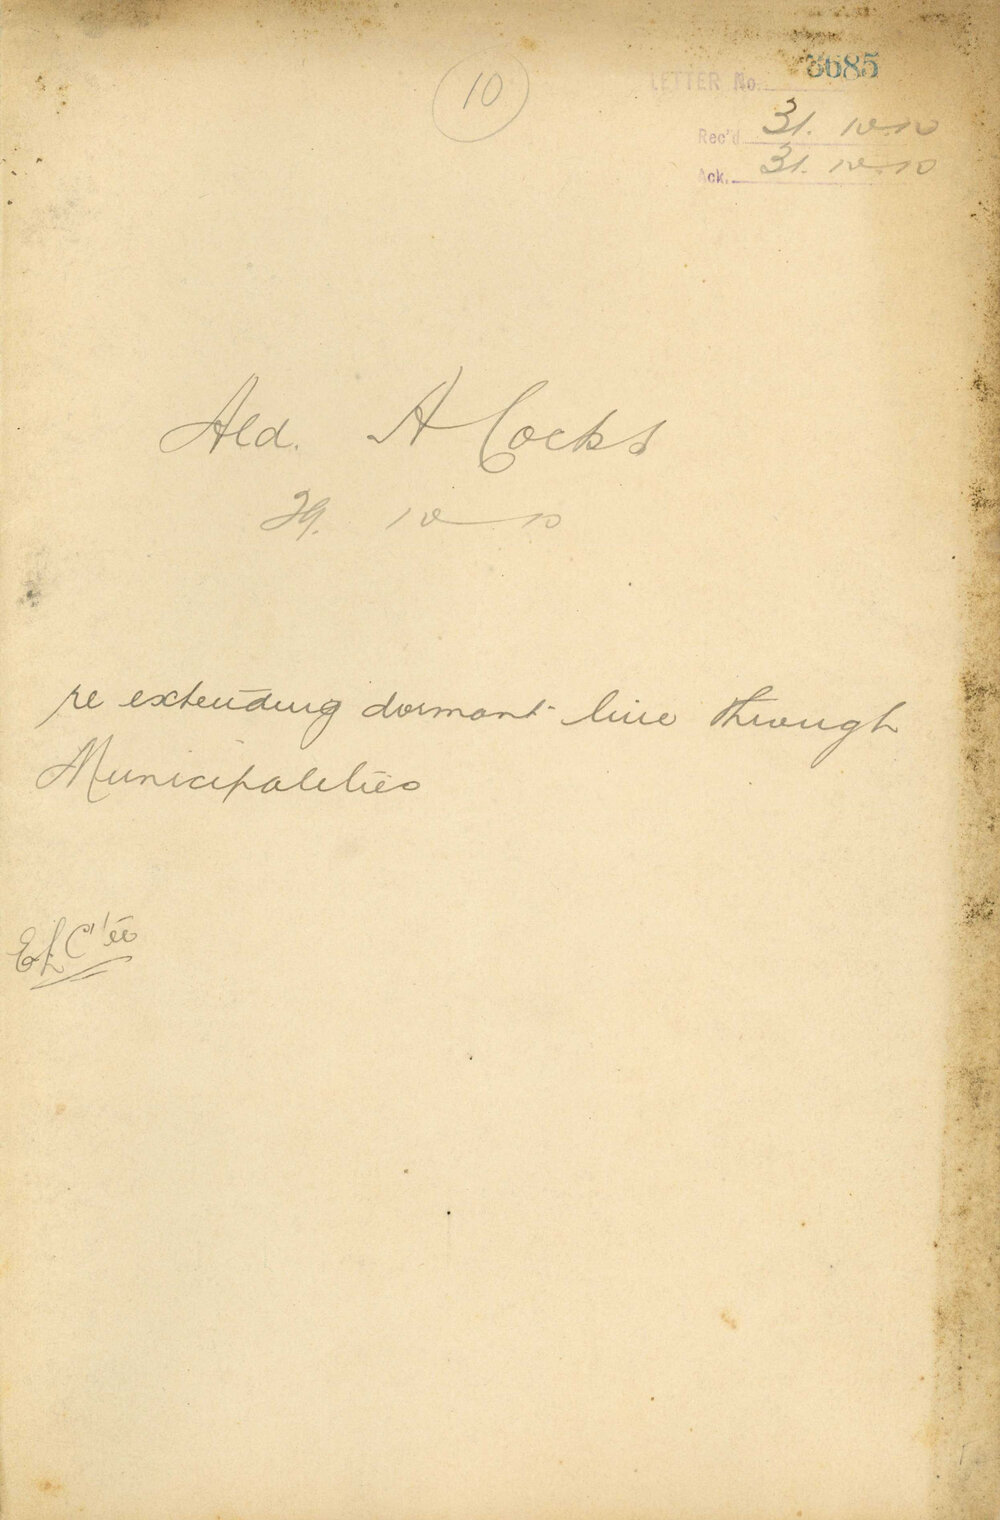 10
LETTER No. 3685
Rec'd 31. 10. 10
Ack. 31. 10. 10
Ald. A Cocks
29. 10 10
re extending dormant line through
Municipalities